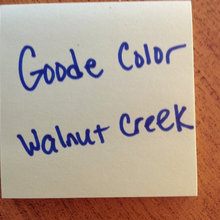 Goode Color
Walnut Creek